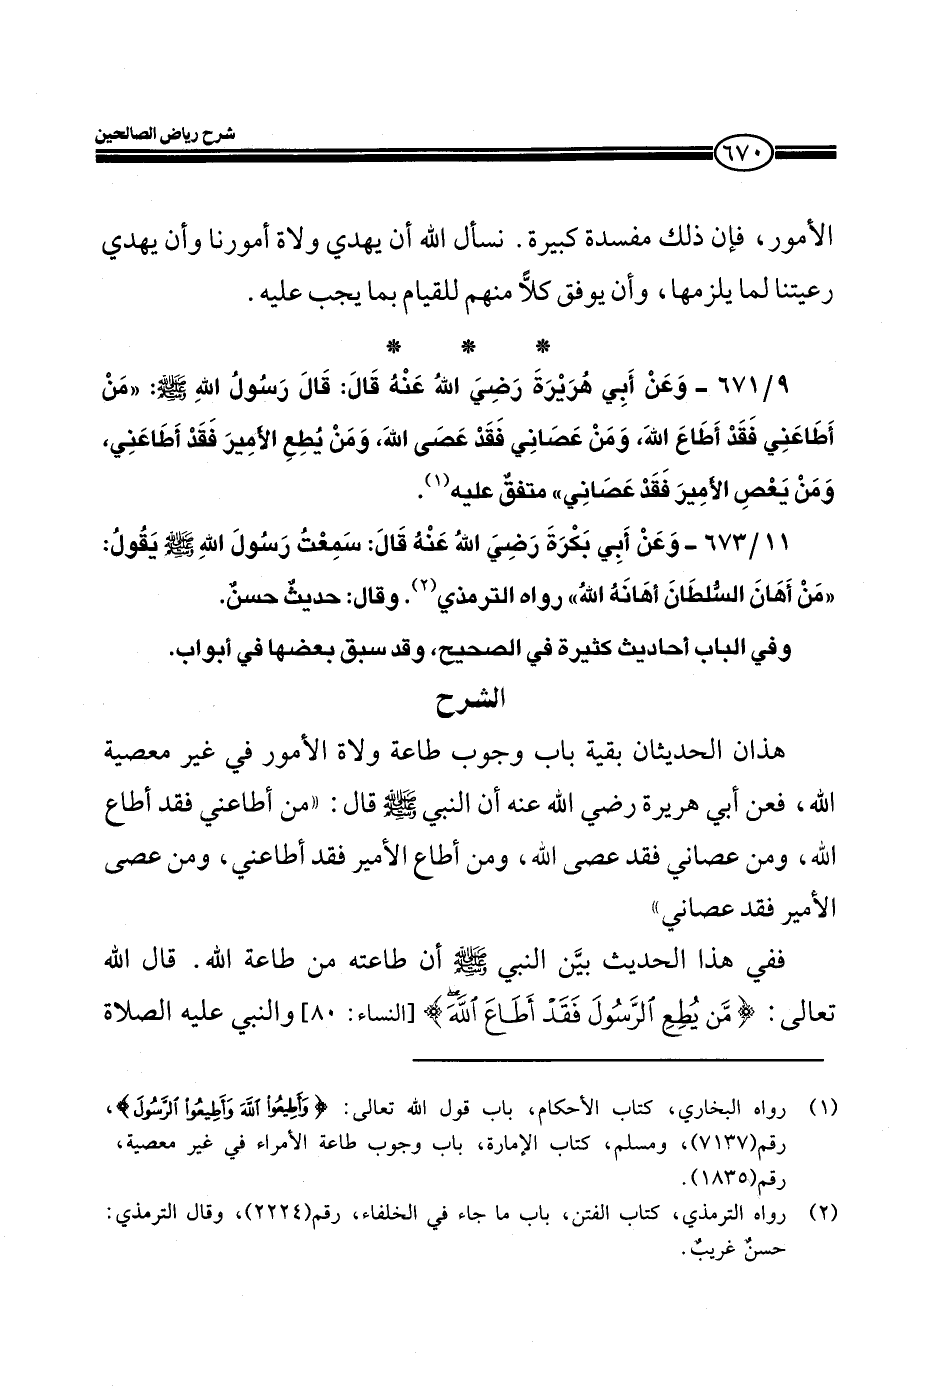 شرح رياض الصالحين
٦٧٠
الأمور، فإن ذلك مفسدة كبيرة. نسأل الله أن يهدي ولاة أمورنا وأن يهدي
رعيتنا لما يلزمها، وأن يوفق كلاًّ منهم للقيام بما يجب عليه.
* * *
٦٧١/٩ - وَعَنْ أَبِي هُرَيْرَةَ رَضِيَ اللهُ عَنْهُ قَالَ: قَالَ رَسُولُ اللهِ ﷺ: «مَنْ
أَطَاعَنِي فَقَدْ أَطَاعَ اللهَ، وَمَنْ عَصَانِي فَقَدْ عَصَى اللهَ، وَمَنْ يُطِعِ الأَمِيرَ فَقَدْ أَطَاعَنِي،
وَمَنْ يَعْصِ الأَمِيرَ فَقَدْ عَصَانِي» متفقٌ عليه(١).
٦٧٣/١١ - وَعَنْ أَبِي بَكْرَةَ رَضِيَ اللهُ عَنْهُ قَالَ: سَمِعْتُ رَسُولَ اللهِ ﷺ يَقُولُ:
«مَنْ أَهَانَ السُّلطَانَ أهَانَهُ اللهُ» رواه الترمذي(٢). وقال: حديثٌ حسنٌ.
وفي الباب أحاديث كثيرة في الصحيح، وقد سبق بعضها في أبواب.
الشرح
هذان الحديثان بقية باب وجوب طاعة ولاة الأمور في غير معصية
الله، فعن أبي هريرة رضي الله عنه أن النبي ﷺ قال: «من أطاعني فقد أطاع
الله، ومن عصاني فقد عصى الله، ومن أطاع الأمير فقد أطاعني، ومن عصى
الأمير فقد عصاني»
ففي هذا الحديث بيَّن النبي ﷺ أن طاعته من طاعة الله. قال الله
تعالى: ﴿مَّن يُطِعِ ٱلرَّسُولَ فَقَدۡ أَطَاعَ ٱللَّهَۖ﴾ [النساء: ٨٠] والنبي عليه الصلاة
(١) رواه البخاري، كتاب الأحكام، باب قول الله تعالى: ﴿وَأَطِيعُوا۟ ٱللَّهَ وَأَطِيعُوا۟ ٱلرَّسُولَ﴾،
رقم(٧١٣٧)، ومسلم، كتاب الإمارة، باب وجوب طاعة الأمراء في غير معصية،
رقم(١٨٣٥).
(٢) رواه الترمذي، كتاب الفتن، باب ما جاء في الخلفاء، رقم(٢٢٢٤)، وقال الترمذي:
حسنٌ غريبٌ.